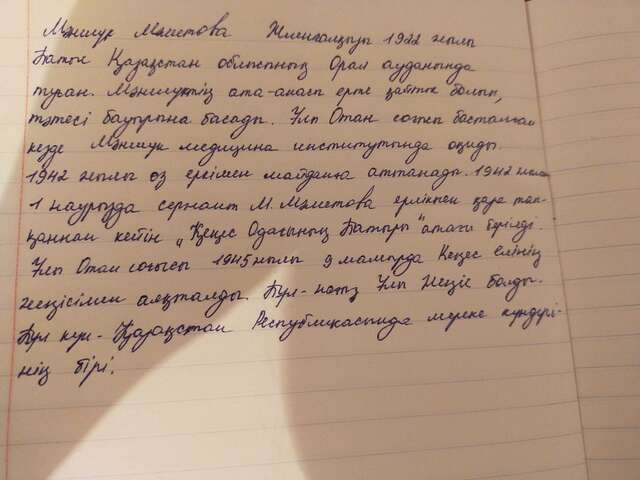 Мәншүк Мәметова Жиенғалиқызы 1922 жылы
Батыс Қазақстан облысының Орал ауданында
туған. Мәншүктің ата-анасы ерте қайтыс болып,
тәтесі бауырына басады. Ұлы Отан соғысы басталған
кезде Мәншүк медицина институтында оқиды.
1942 жылы өз еркімен майданға аттанады. 1942 жылы
1 наурызда сержант М. Мәметова ерлікпен қаза тап-
қаннан кейін „Кеңес Одағының Батыры" атағы берілді.
Ұлы Отан соғысы 1945 жылы 9 мамырда Кеңес елінің
жеңісімен аяқталды. Бұл - нағыз Ұлы Жеңіс болды.
Бұл күн - Қазақстан Республикасында мереке күндері-
нің бірі!